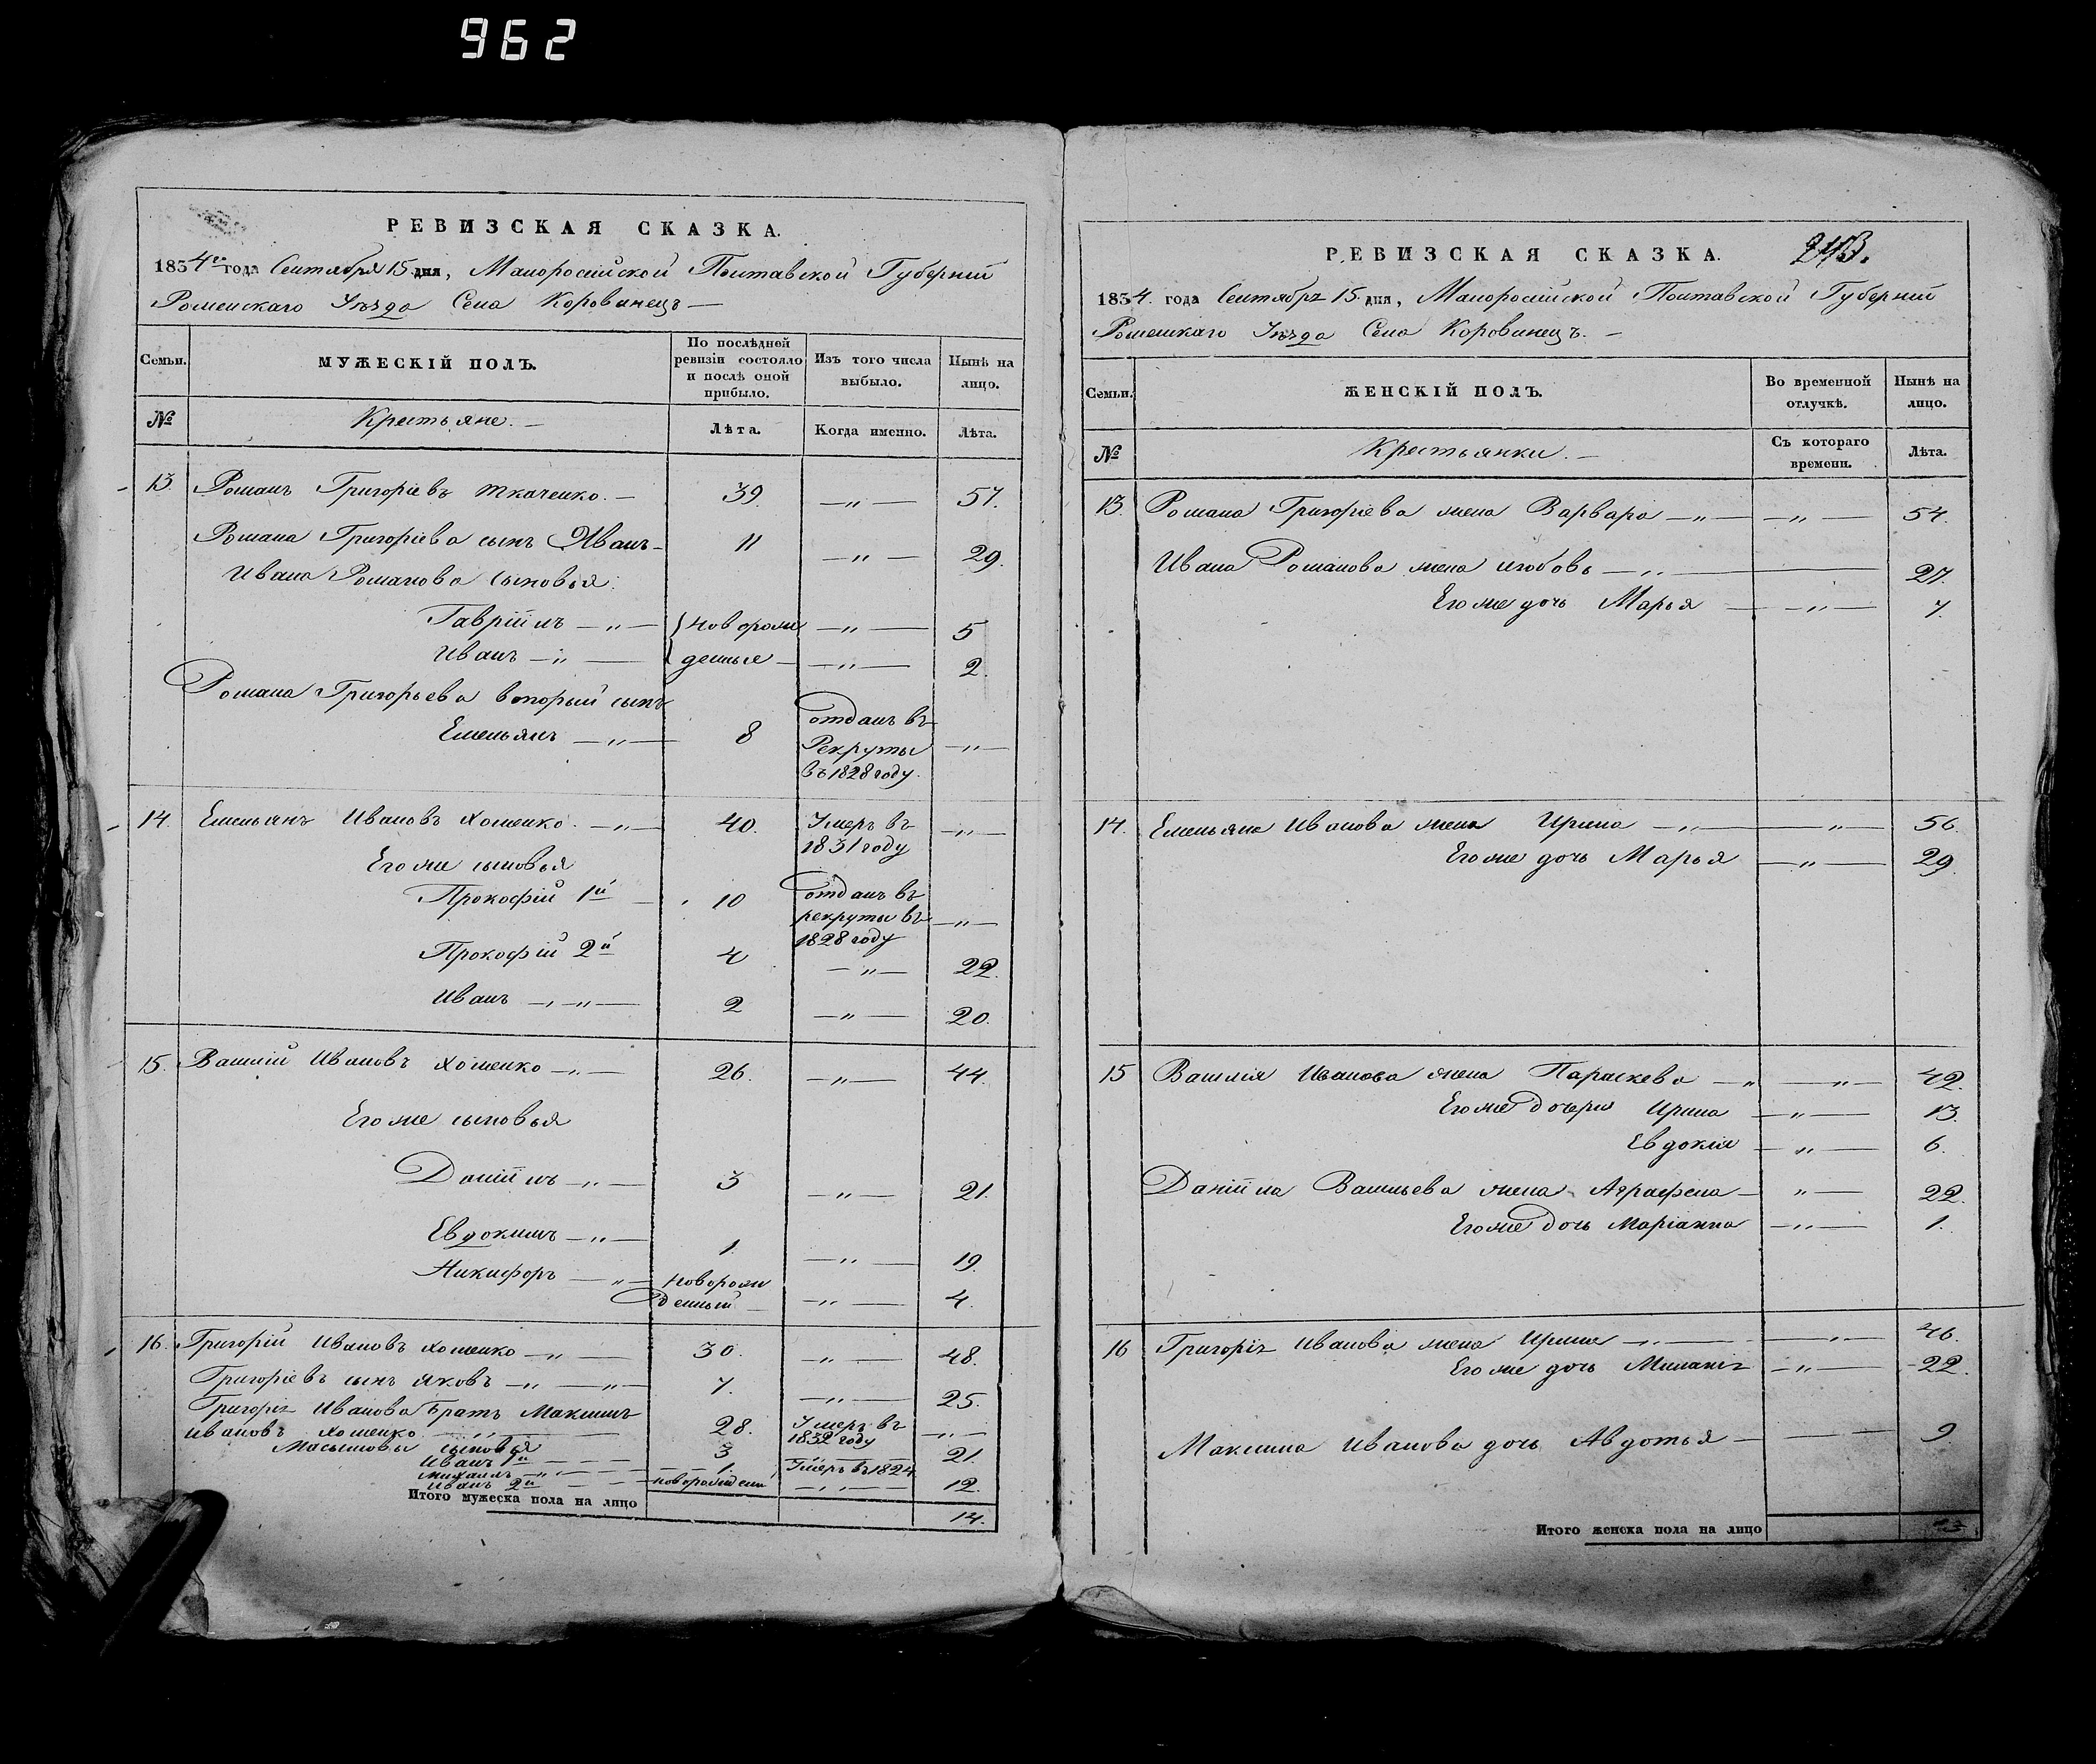 962
РЕВИЗСКАЯ СКАЗКА.
1834го года Сентября 15 дня, Малоросійской Полтавской Губерніи
Роменскаго Уѣзда Села Коровинецъ —
Семьи. МУЖЕСКІЙ ПОЛЪ. По послѣдней ревизіи состояло и послѣ оной прибыло. Изъ того числа выбыло. Нынѣ на лицо.
№ Крестьяне. — Лѣта. Когда именно. Лѣта.
13. Романъ Григоріевъ Ткаченко. — 39. — „ — 57.
Романа Григоріева сынъ Иванъ — 11 — „ — 29.
Ивана Романова сыновья:
Гавріилъ — „ — новорож — „ — 5
Иванъ — „ — денные — — „ — 2.
Романа Григорьева второый сынъ
Емельянъ — „ — 8 отданъ въ Рекруты въ 1828 году. — „ —
14. Емельянъ Ивановъ Хоменко. — „ — 40. Умеръ въ 1831 году — „ —
Его же сыновья
Прокофій 1й — 10 отданъ въ рекруты въ 1828 году — „ —
Прокофій 2й 4 — „ — 22.
Иванъ — „ — 2 — „ — 20.
15. Василій Ивановъ Хоменко — „ — 26. — „ — 44.
Его же сыновья
Даніилъ — „ — 3 — „ — 21.
Евдокимъ — „ — 1. — „ — 19.
Никифоръ — „ — новорож
денный — — „ — 4.
16. Григорій Ивановъ Хоменко — „ — 30. — „ — 48.
Григоріевъ сынъ Яковъ — „ — „ — 7. — „ — 25.
Григорія Иванова Братъ Максимъ
Ивановъ Хоменко — „ — 28. Умеръ въ 1832 году — „ —
Максимовы сыновья
Иванъ 1й — — — 3 — „ — 21.
Михаилъ — „ — 1. Умеръ въ 1824
Иванъ 2й — — новорожденый — „ — 12.
Итого мужеска пола на лицо 14.
РЕВИЗСКАЯ СКАЗКА. 243.
1834. года Сентября 15. дня, Малоросійской Полтавской Губерніи
Роменскаго Уѣзда Села Коровинецъ. —
Семьи. ЖЕНСКІЙ ПОЛЪ. Во временной отлучкѣ. Нынѣ на лицо.
№ Крестьянки. — Съ котораго времени. Лѣта.
13. Романа Григоріева жена Варвара — „ — — „ — 54.
Ивана Романова жена Любовь — „ — 27.
Его же дочь Марья — — „ — 7.
14. Емельяна Иванова жена Ирина — „ — — „ — 56.
Его же дочь Марья — „ — 29.
15 Василія Иванова жена Параскева — „ — „ — 42.
Его же дочери Ирина — „ — 13.
Евдокія — „ — 6.
Даніила Васильева жена Аграфена — „ — 22.
Его же дочь Маріанна — „ — 1.
16 Григорія Иванова жена Ирина — „ — — „ — 46.
Его же дочь Миланія — „ — 22.
Максима Иванова дочь Авдотья — — — 9
Итого женска пола на лицо 13